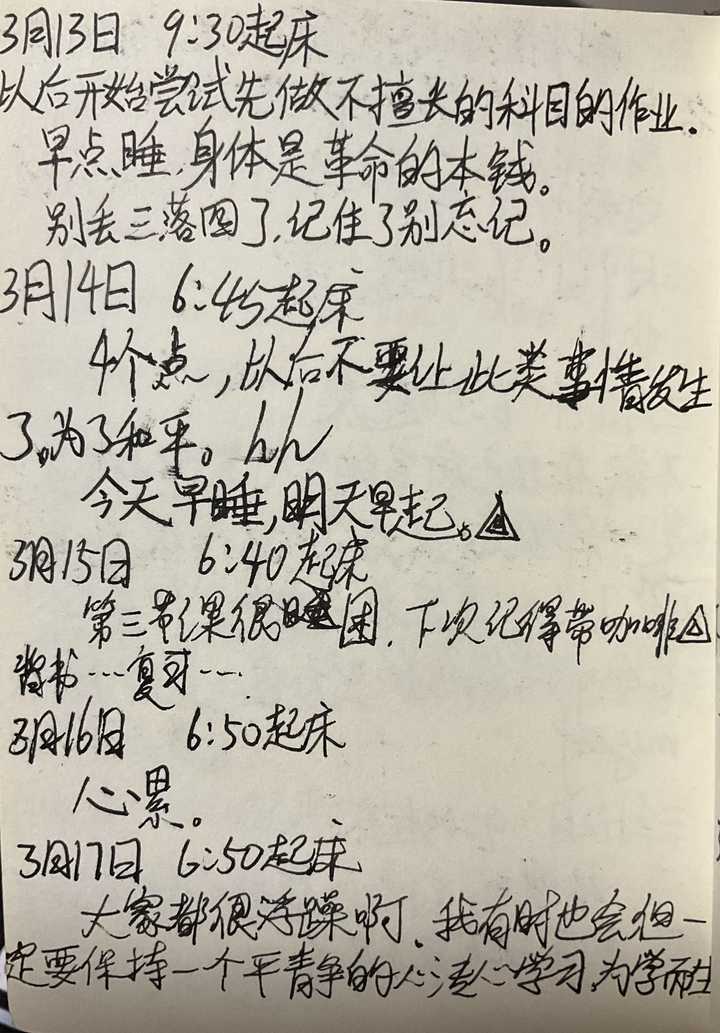 3月13日 9:30起床
以后开始尝试先做不擅长的科目的作业.
早点睡,身体是革命的本钱。
别丢三落四了,记住了别忘记。
3月14日 6:45起床
4个点,以后不要让此类事情发生
了。为了和平。hh
今天早睡,明天早起。
3月15日 6:40起床
第三节课很困,下次记得带咖啡
背书…复习…
3月16日 6:50起床
心累。
3月17日 6:50起床
大家都很浮躁啊,我有时也会但一
定要保持一个平静的心学习,为学而生